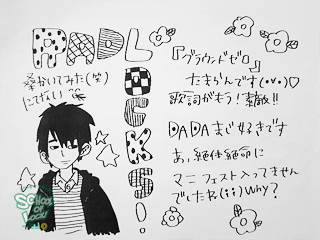 RADLOCKS!
桑かいてみた(笑)
にてない
『グラウンドゼロ』
たまらんです(•v•)♡
歌詞がもう!素敵!!
DADAまじ好きです
あ、絶体絶命に
マニフェスト入ってません
でしたね(;;)Why?
SCHOOL OF LOCK!